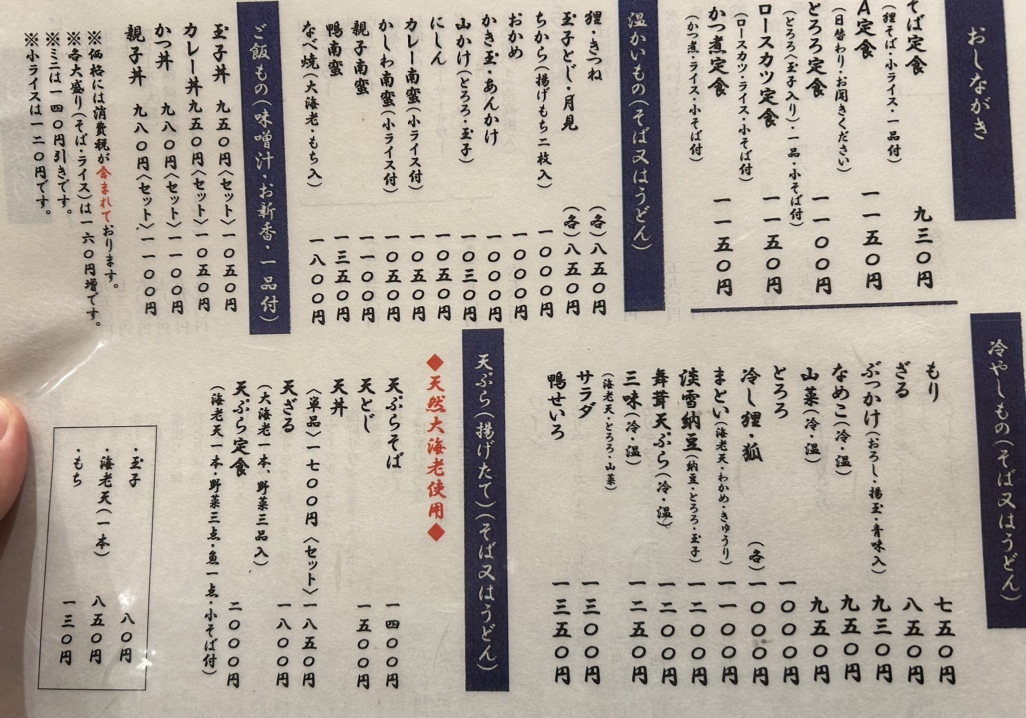 おしながき
そば定食 九三〇円
(狸そば・小ライス・一品付)
A定食 一一五〇円
(日替わり・お聞きください)
とろろ定食 一一〇〇円
(とろろ(玉子入り)・一品・小そば付)
ロースカツ定食 一一五〇円
(ロースカツ・ライス・小そば付)
かつ煮定食 一一五〇円
(かつ煮・ライス・小そば付)
温かいもの(そば又はうどん)
狸・きつね (各)八五〇円
玉子とじ・月見 (各)八五〇円
ちから(揚げもち二枚入) 一〇〇〇円
おかめ 一〇〇〇円
かき玉・あんかけ 一〇〇〇円
山かけ(とろろ・玉子) 一〇三〇円
にしん 一〇五〇円
カレー南蛮(小ライス付) 一〇五〇円
かしわ南蛮(小ライス付) 一〇五〇円
親子南蛮 一一〇〇円
鴨南蛮 一三五〇円
なべ焼(大海老・もち入) 一八〇〇円
ご飯もの(味噌汁・お新香・一品付)
玉子丼 九五〇円〈セット〉一〇五〇円
カレー丼 九五〇円〈セット〉一〇五〇円
かつ丼 九八〇円〈セット〉一一〇〇円
親子丼 九八〇円〈セット〉一一〇〇円
※価格には消費税が含まれております。
※各大盛り(そば・ライス)は一六〇円増です。
※ミニは一四〇円引きです。
※小ライスは一二〇円です。
冷やしもの(そば又はうどん)
もり 七五〇円
ざる 八五〇円
ぶっかけ(おろし・揚玉・青味入) 九三〇円
なめこ(冷・温) 九五〇円
山菜(冷・温) 九五〇円
とろろ 一〇〇〇円
冷し狸・狐 (各)一〇〇〇円
まとい(海老天・わかめ・きゅうり) 一一〇〇円
淡雪納豆(納豆・とろろ・玉子) 一二〇〇円
舞茸天ぷら(冷・温) 一二〇〇円
三味(冷・温) 一二五〇円
(海老天・とろろ・山菜)
サラダ 一三〇〇円
鴨せいろ 一三五〇円
天ぷら(揚げたて)(そば又はうどん)
◆天然大海老使用◆
天ぷらそば 一四〇〇円
天とじ 一五〇〇円
天丼
〈単品〉一七〇〇円〈セット〉一八五〇円
天ざる 一八〇〇円
(大海老一本、野菜三品入)
天ぷら定食 二〇〇〇円
(海老天一本・野菜三点・魚一点・小そば付)
・玉子 八〇円
・海老天(一本) 八五〇円
・もち 一三〇円